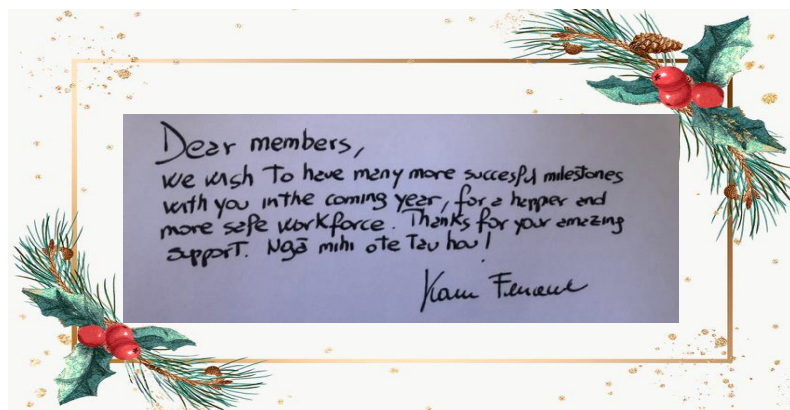 Dear members,
we wish To have many more succesful milestones
with you in the coming year, for a happer and
more safe workforce. Thanks for your amazing
support. Ngā mihi o te Tau hou!